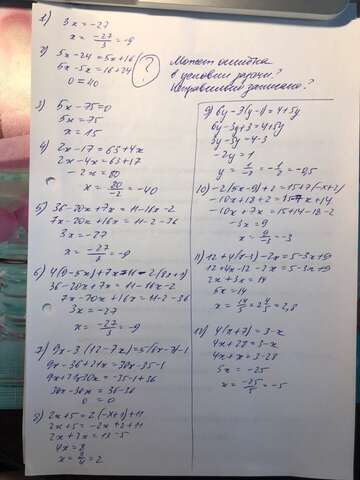 1) 3x = -27
x = -27/3 = -9
2) 5x - 24 = 5x + 16
5x - 5x = 16 + 24
0 = 40
?
Может ошибка
в условии задачи?
Неправильно записано?
3) 5x - 75 = 0
5x = 75
x = 15
4) 2x - 17 = 63 + 4x
2x - 4x = 63 + 17
-2x = 80
x = 80/-2 = -40
5) 36 - 20x + 7x = 11 - 16x - 2
7x - 20x + 16x = 11 - 2 - 36
3x = -27
x = -27/3 = -9
6) 4(9 - 5x) + 7x = 11 - 2(8x + 1)
36 - 20x + 7x = 11 - 16x - 2
7x - 20x + 16x = 11 - 2 - 36
3x = -27
x = -27/3 = -9
7) 9x - 3(12 - 7x) = 5(6x - 7) - 1
9x - 36 + 21x = 30x - 35 - 1
9x + 21x - 30x = -35 - 1 + 36
30x - 30x = 36 - 36
0 = 0
8) 2x + 5 = 2(-x + 1) + 11
2x + 5 = -2x + 2 + 11
2x + 2x = 13 - 5
4x = 8
x = 8/4 = 2
9) 6y - 3(y - 1) = 4 + 5y
6y - 3y + 3 = 4 + 5y
3y - 5y = 4 - 3
-2y = 1
y = 1/-2 = -1/2 = -0,5
10) -2(5x - 9) + 2 = 15 + 7(-x + 2)
-10x + 18 + 2 = 15 - 7x + 14
-10x + 7x = 15 + 14 - 18 - 2
-3x = 9
x = 9/-3 = -3
11) 12 + 4(x - 3) - 2x = 5 - 3x + 9
12 + 4x - 12 - 2x = 5 - 3x + 9
2x + 3x = 14
5x = 14
x = 14/5 = 2 4/5 = 2,8
12) 4(x + 7) = 3 - x
4x + 28 = 3 - x
4x + x = 3 - 28
5x = -25
x = -25/5 = -5